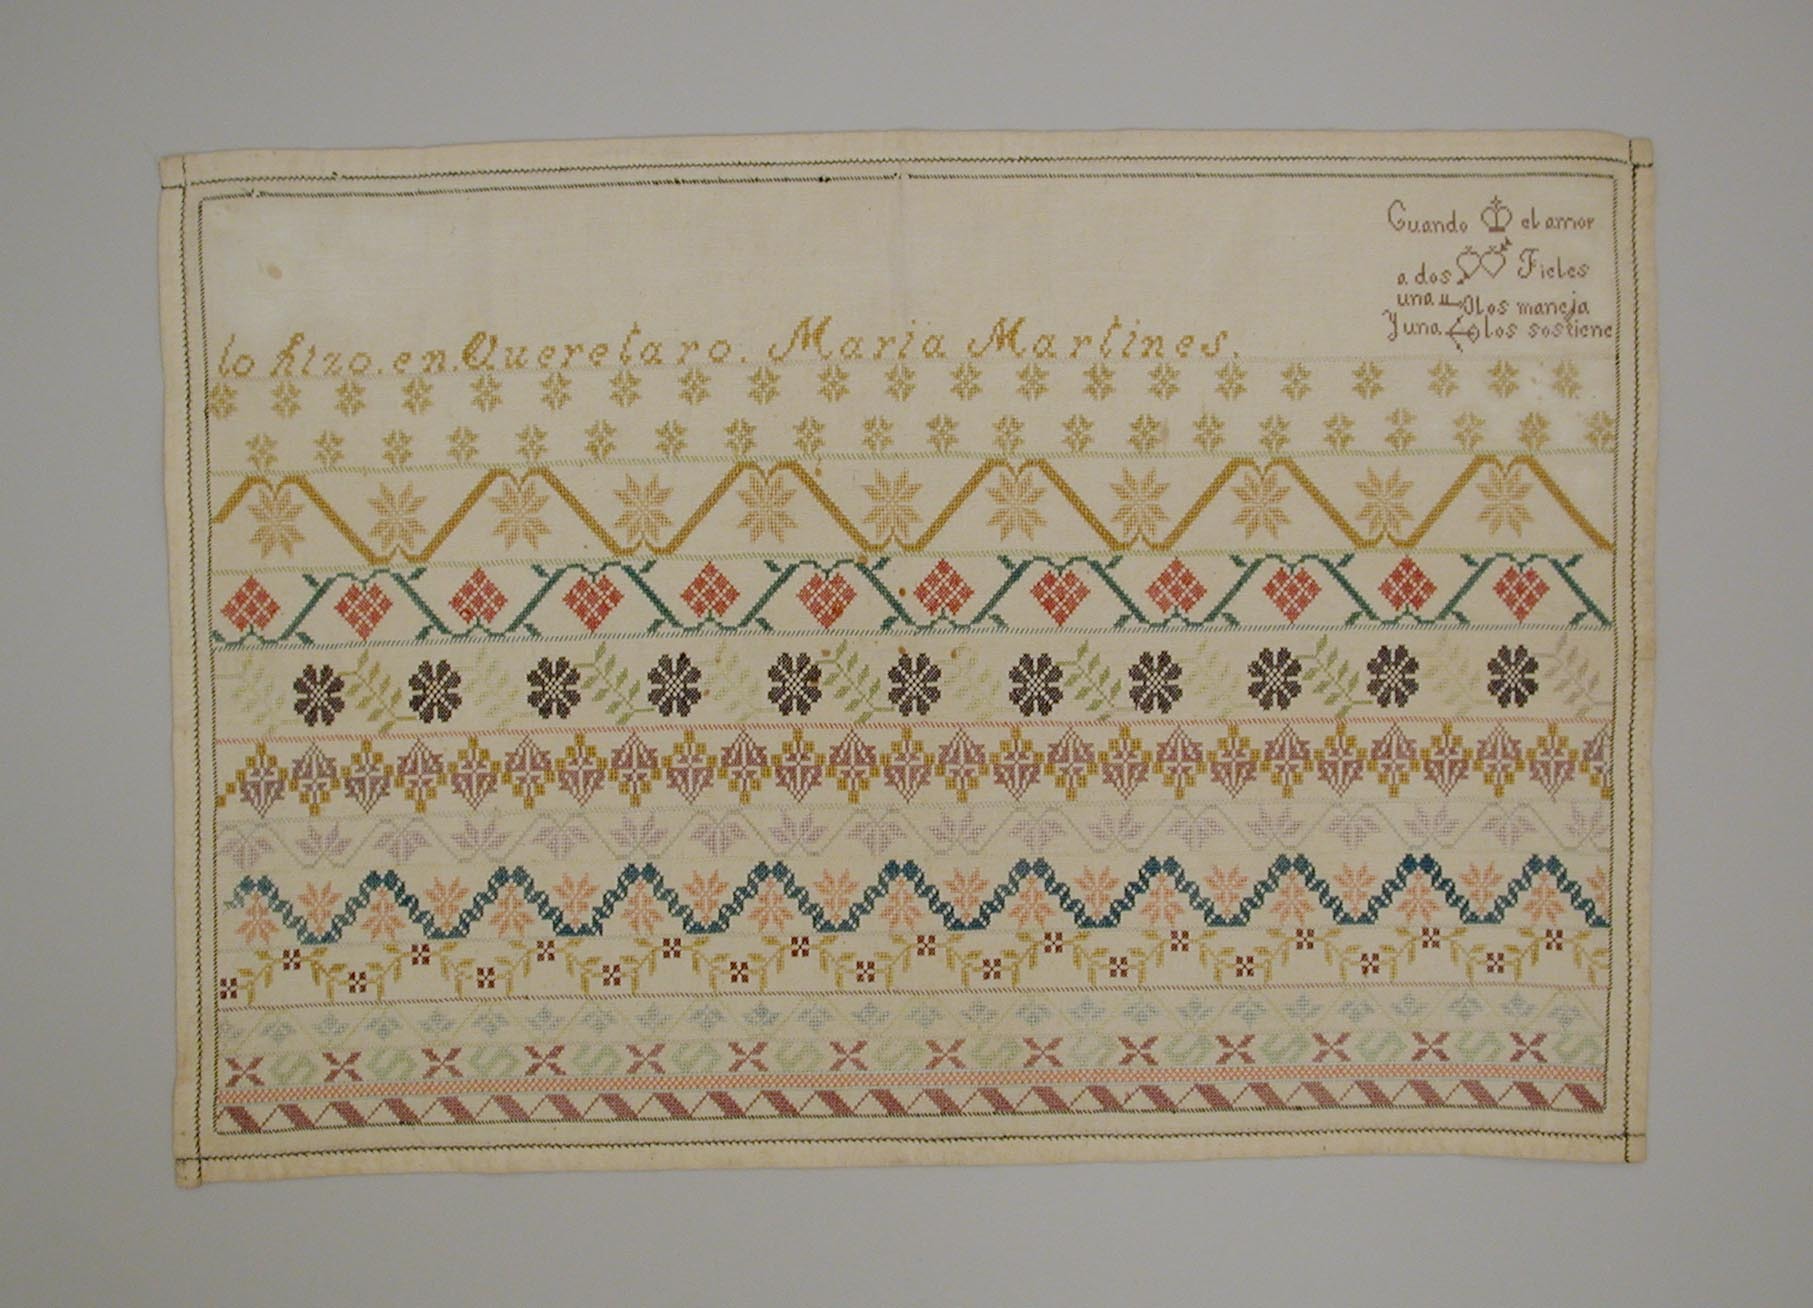 Cuando el amor
a dos Fieles
una los maneja
y una los sostiene
lo hizo. en. Queretaro. Maria Martines.